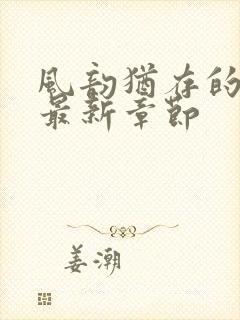 风韵犹存的
最新章节
姜潮